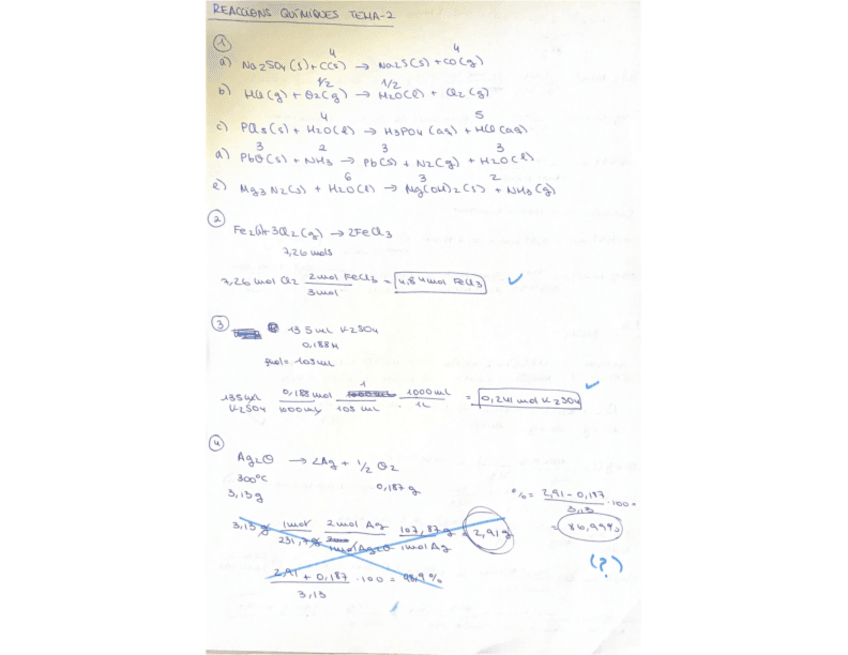 REACCIONS QUÍMIQUES TEMA-2
①
a) Na2SO4(s) + 4C(s) → Na2S(s) + 4CO(g)
b) HCl(g) + 1/2 O2(g) → 1/2 H2O(l) + Cl2(g)
c) PCl5(s) + 4H2O(l) → H3PO4(aq) + 5HCl(aq)
d) 3PbO(s) + 2NH3 → 3Pb(s) + N2(g) + 3H2O(l)
e) Mg3N2(s) + 6H2O(l) → 3Mg(OH)2(s) + 2NH3(g)
②
+ 3Cl2(g) → 2FeCl3
7,26 mols
7,26 mol Cl2 2mol FeCl3 / 3mol = 4,84mol FeCl3
③
135 mL K2SO4
0,188M
103 mL
135 mL K2SO4 0,188 mol / 1000mL 1 / 103 mL 1000 mL / 1L = 0,241 mol K2SO4
④
Ag2O → 2Ag + 1/2 O2
300ºC
3,13g 0,187 g
% = 2,91 - 0,187 / 3,13 · 100 =
= 86,99%
3,13 g 1mol / 231,7g 2mol Ag / 1mol Ag2O 107,87 g / 1mol Ag = 2,91 g
(?)
2,91 + 0,187 / 3,13 · 100 = 98,9 %